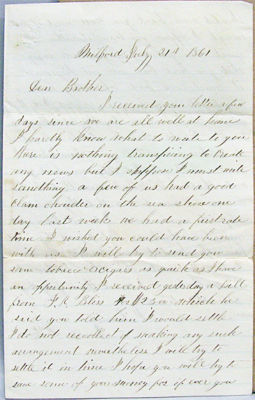 Milford July 21st 1861
Dear Brother,
I received your letter a few
days since we are all well at home
I hardly know what to write to you
there is nothing transpiring to create
any news but I suppose I must write
something a few of us had a good
clam chowder on the sea shore one
day last week we had a first rate
time I wished you could have been
with us. I will try to send you
some tobacco & cigars as quick as I have
an opportunity I received yesterday a bill
from F. A. Bliss which he
said you told him I would settle
I do not recollect of making any such
arrangement nevertheless I will try to
settle it in time I hope you will try to
save some of your money for if ever you